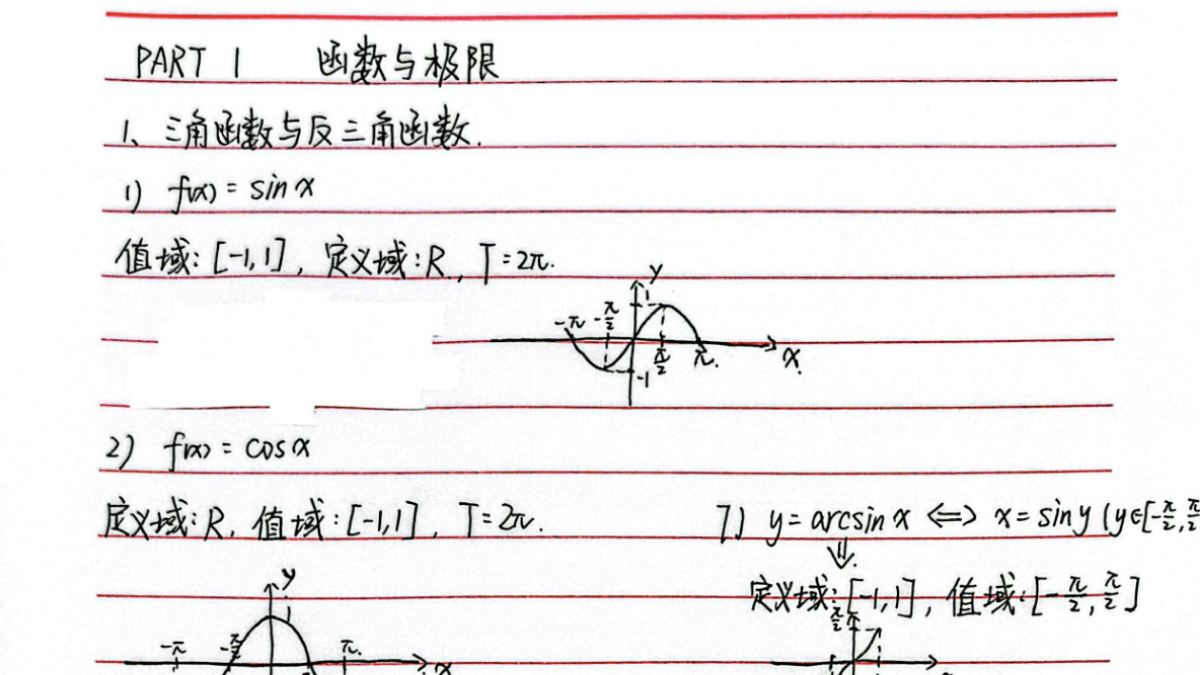 PART 1 函数与极限
1、三角函数与反三角函数.
1) f(x) = sin x
值域: [-1,1], 定义域: R, T=2π.
y
1
-π -π/2
π/2 π. x
-1
2) f(x) = cos x
定义域: R, 值域: [-1,1], T=2π.
y
1
-π -π/2 π. x
7) y = arcsin x ⟺ x = sin y (y∈[-π/2, π/2
⇓
定义域: [-1,1], 值域: [-π/2, π/2]
π/2